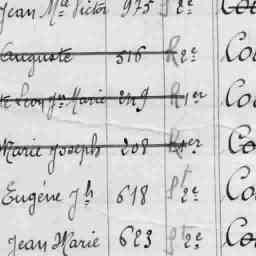 Jean Mie Victor 975 St 2e Co
Auguste 516 R 2e Co
Leon Jn Marie 249 R 1er Co
Marie Joseph 208 R 1er Co
Eugène Jh 618 St 2e Co
Jean Marie 623 St 2e Co